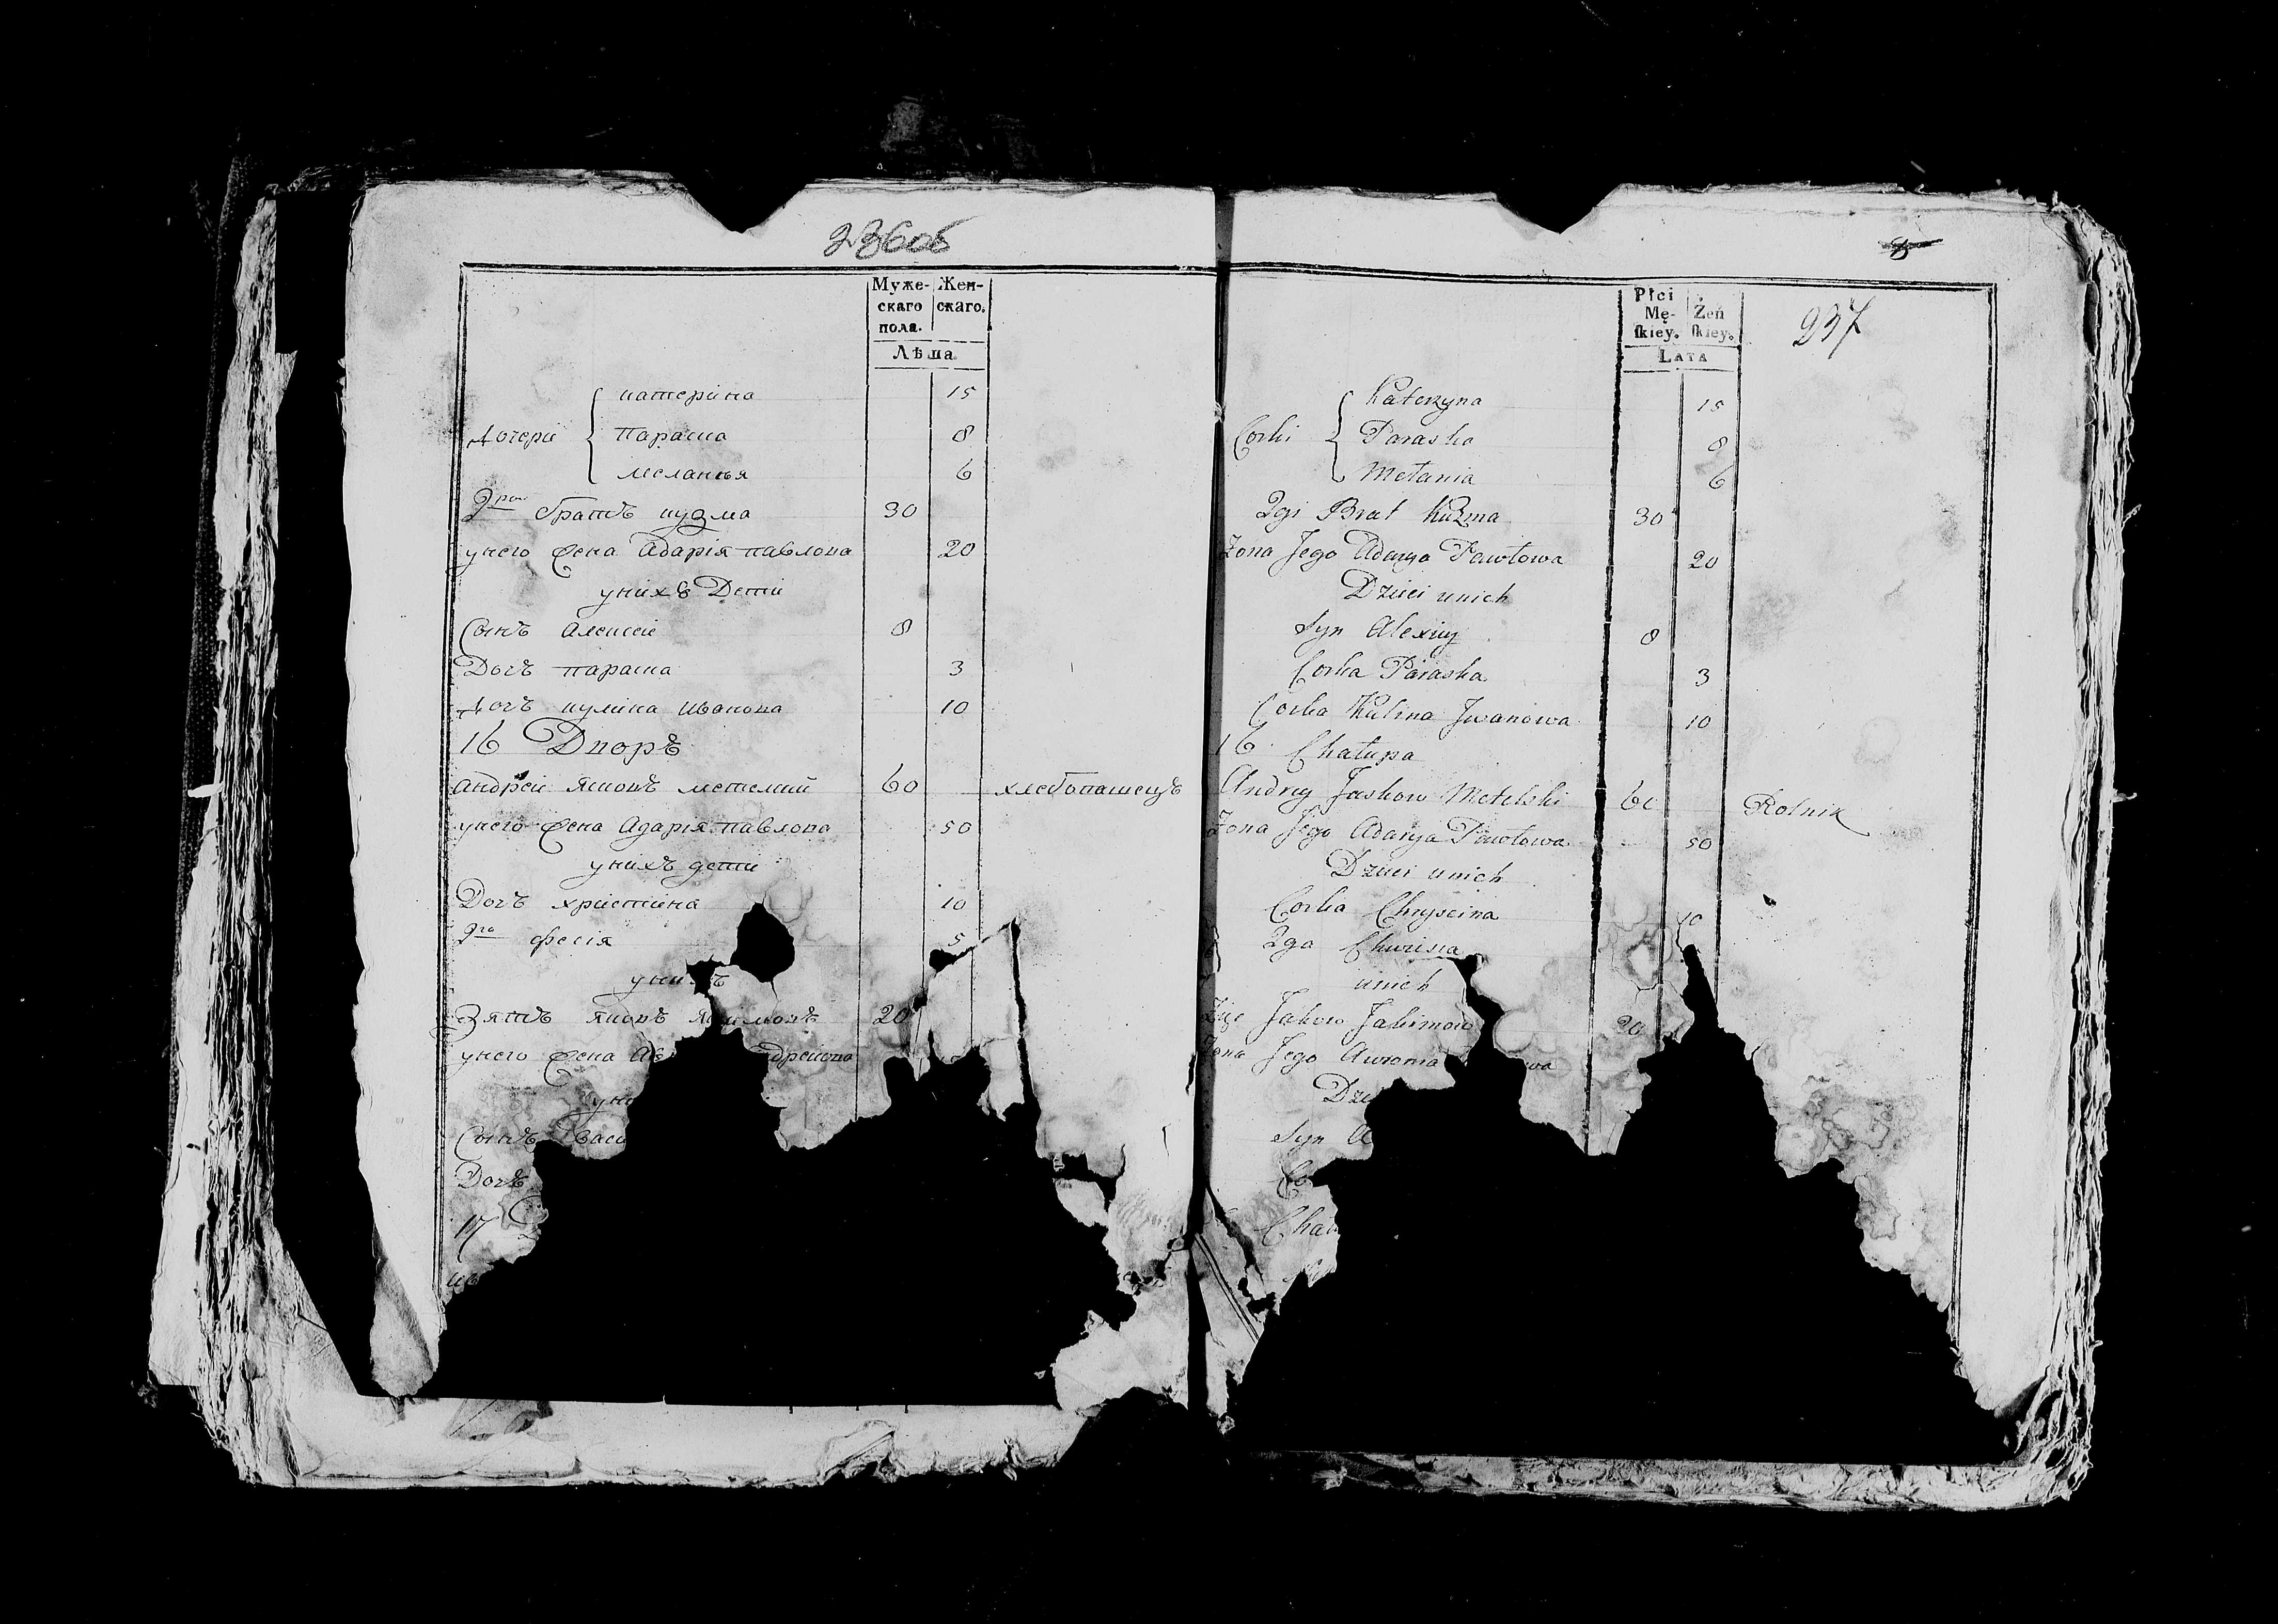 236об
Муже-
скаго
пола.
Жен-
скаго.
Лѣта
катеріна 15
Дочеріі параска 8
меланья 6
2рои братъ кузма 30
унего жена Адарія павлова 20
унихъ Детіі
Сынъ Алексеіі 8
Дочъ параска 3
Дочъ куліна іванова 10
16 Дворъ
Андреіі яковъ метелкій 60 хлебопашецъ
унего жена Адарія павлова 50
унихъ детіі
Дочъ хрістіина 10
2га фесія 5
унихъ
Зять яковъ 20
унего жена
Сынъ
Дочъ
17
237
Płci
Mę-
ſkiey.
Żeń
ſkiey.
Lata
Katerzyna 15
Corki Paraska 8
Mełania 6
2gi Brat Kuzma 30
Żona Jego Adarya Pawłowa 20
Dzieci unich
Syn Alexiey 8
Corka Paraska 3
Corka Kulina Jwanowa 10
16 Chałupa
Andrey Jaskow Metelski 60 Rolnik
Żona Jego Adarya Pawłowa 50
Dzieci unich
Corka Chryscina 10
2ga
unich
Zięć Jakow Jakimow 20
Żona Jego
Syn